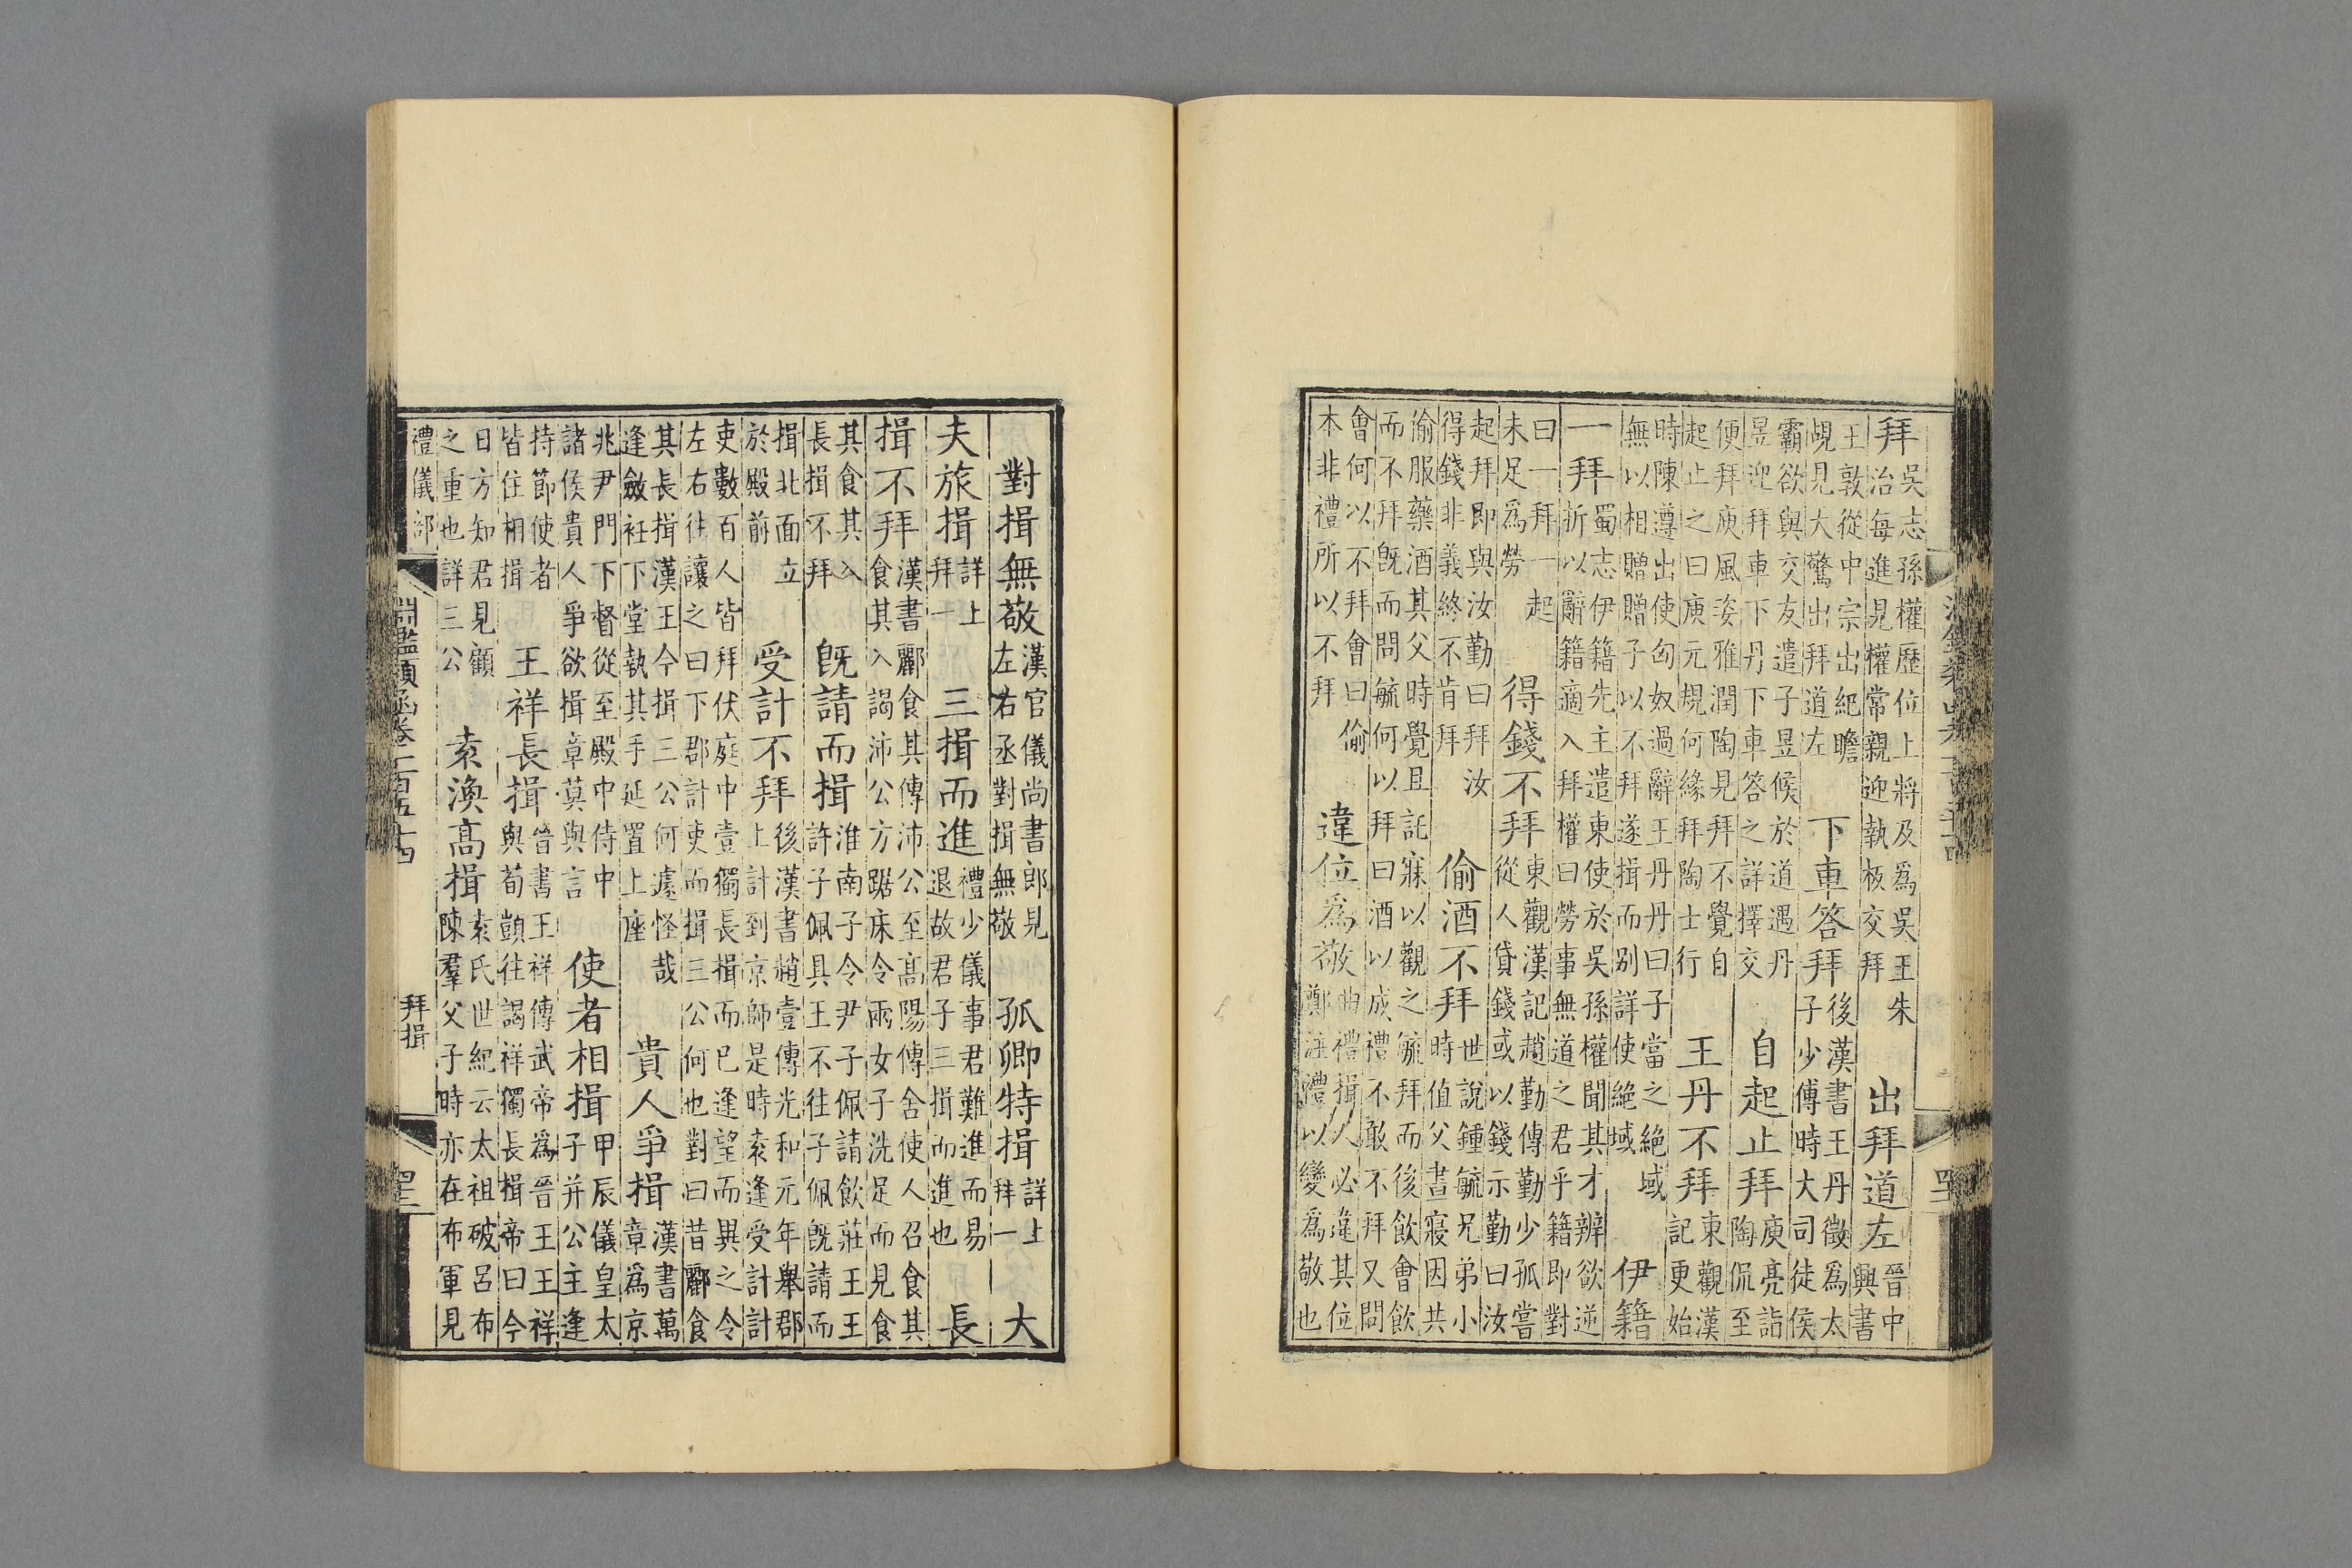 拜吳志孫權歷位上將及為吳王朱治每進見權常親迎執板交拜　出拜道左晉中興書
王敦從中宗出紀瞻覘見大驚出拜道左　下車答拜後漢書王丹徵為太子少傅時大司徒侯
霸欲與交友遣子昱候於道遇丹昱迎拜車下丹下車答之詳擇交　自起止拜庾亮詣陶侃至
便拜庾風姿雅潤陶見拜不覺自起止之曰庾元規何緣拜陶士行　王丹不拜東觀漢記更始
時陳遵出使匈奴過辭王丹丹曰子當之絕域無以相贈贈子以不拜遂揖而別詳使絕域　伊籍
一拜蜀志伊籍先主遣東使於吳孫權聞其才辨欲逆折以辭籍適入拜權曰勞事無道之君乎籍即對
曰一拜一起未足為勞　得錢不拜東觀漢記趙勤傳勤少孤嘗從人貸錢或以錢示勤曰汝
起拜即與汝勤曰拜汝得錢非義終不肯拜　偷酒不拜世說鍾毓兄弟小時值父晝寢因共
偷服藥酒其父時覺且託寐以觀之毓拜而後飲會飲而不拜既而問毓何以拜曰酒以成禮不敢不拜又問
會何以不拜會曰偷本非禮所以不拜　違位為敬曲禮揖人必違其位鄭注禮以變為敬也
對揖無敬漢官儀尚書郎見左右丞對揖無敬　孤卿特揖詳上拜一　大
夫旅揖詳上拜一　三揖而進禮少儀事君難進而易退故君子三揖而進也　長
揖不拜漢書酈食其傳沛公至高陽傳舍使人召食其食其入謁沛公方踞床令兩女子洗足而見食
其食其入長揖不拜　既請而揖淮南子令尹子佩請飲莊王王許子佩具王不往子佩既請而
揖北面立於殿前　受計不拜後漢書趙壹傳光和元年舉郡上計到京師是時袁逢受計計
吏數百人皆拜伏庭中壹獨長揖而已逢望而異之令左右往讓之曰下郡計吏而揖三公何也對曰昔酈食
其長揖漢王今揖三公何遽怪哉逢斂衽下堂執其手延置上座　貴人爭揖漢書萬章為京
兆尹門下督從至殿中侍中諸侯貴人爭欲揖章莫與言　使者相揖甲辰儀皇太子并公主逢
持節使者皆住相揖　王祥長揖晉書王祥傳武帝為晉王王祥與荀顗往謁祥獨長揖帝曰今
日方知君見顧之重也詳三公　袁渙高揖袁氏世紀云太祖破呂布陳羣父子時亦在布軍見
禮儀部
淵鑑類函卷二百五十四
拜揖